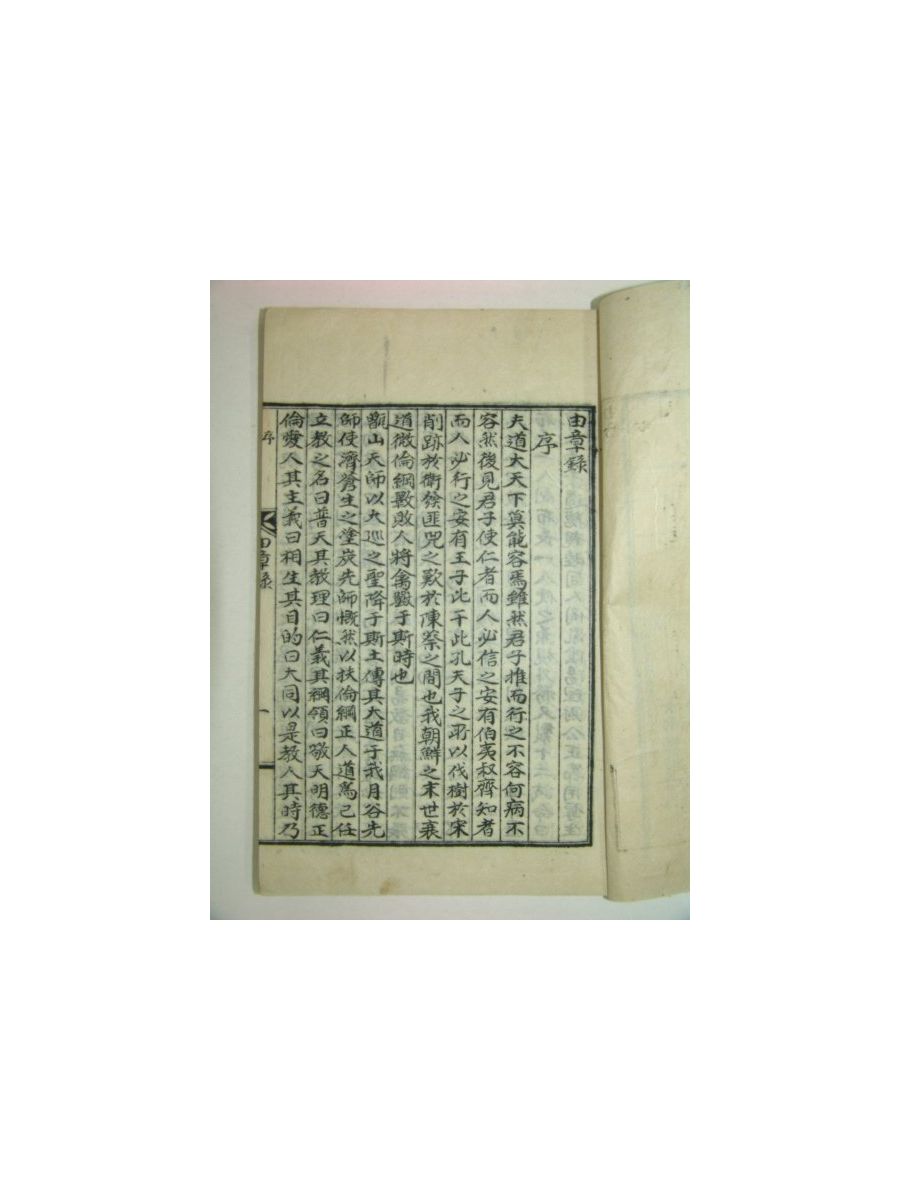 由章錄
序
夫道大天下莫能容焉雖然君子推而行之不容何病不
容然後見君子使仁者而人必信之安有伯夷叔齊知者
而人必行之安有王子比干此孔夫子之所以伐樹於宋
削跡於衛發匪兕之歎於陳蔡之間也我朝鮮之末世衰
道微倫綱斁敗人將禽獸于斯時也
甑山天師以大巡之聖降于斯土傳其大道于我月谷先
師使濟蒼生之塗炭先師慨然以扶倫綱正人道爲己任
立教之名曰普天其教理曰仁義其綱領曰敬天明德正
倫愛人其主義曰相生其目的曰大同以是教人其時乃
序 由章录 一